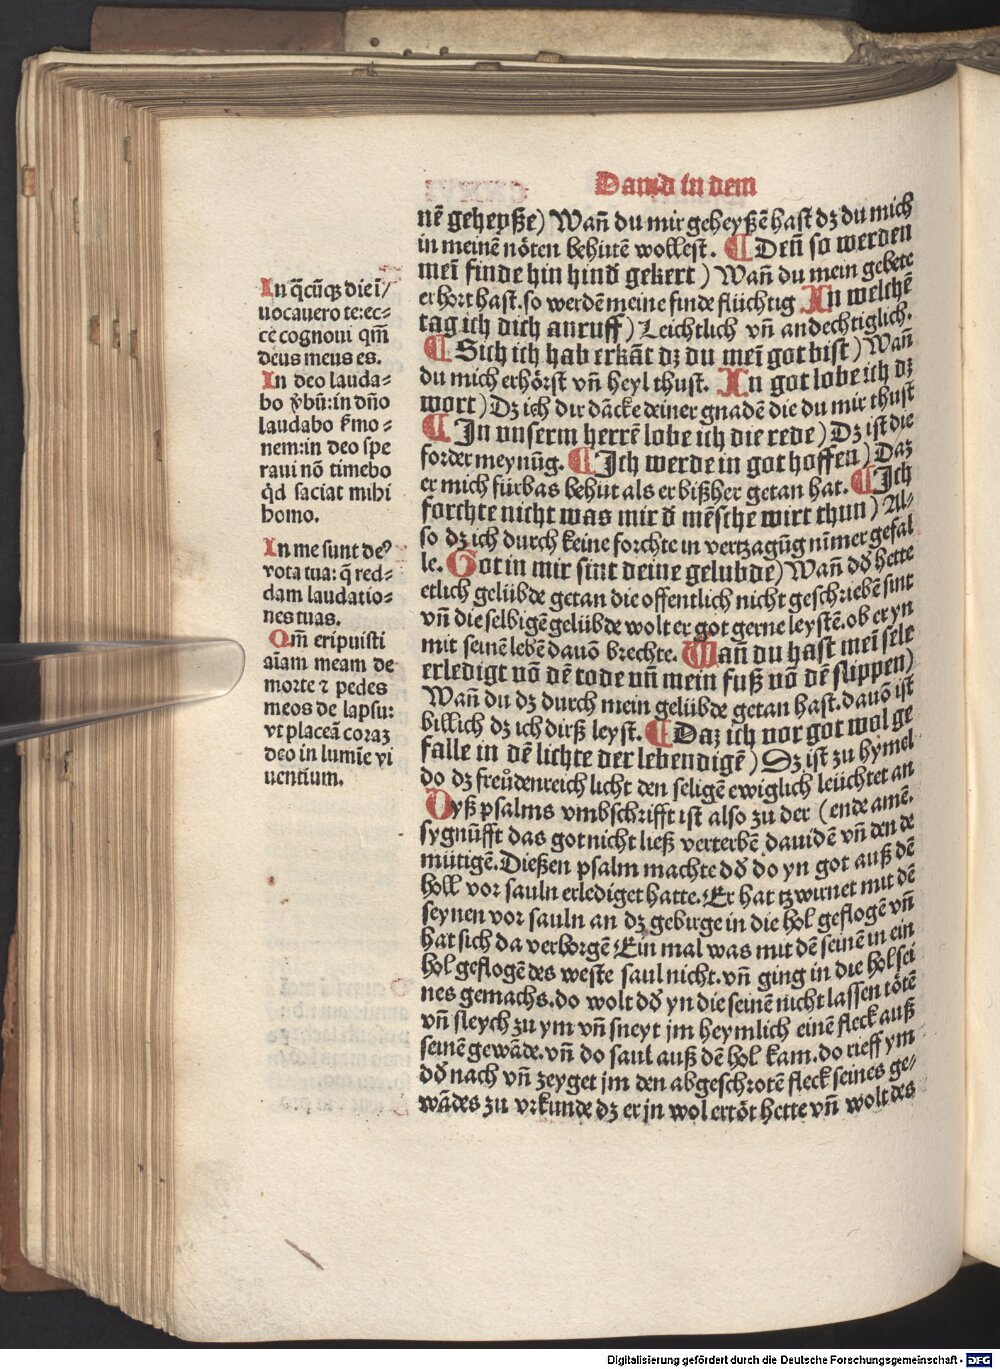 Dauid in dem
nē geheyße) Wañ du mir geheyßē hast dz du mich
in meinē nöten behütē wollest. ¶ Deñ so werden
meī finde hin hind̄ gekert) Wañ du mein gebete
erhort hast. so werdē meine finde flüchtig In welchē
tag ich dich anruff) Leichtlich vñ andechtiglich.
¶ Sich ich hab erkāt dz du meī got bist) Wañ
du mich erhörst vñ heyl thust. In got lobe ich dz
wort) Dz ich dir dācke deiner gnadē die du mir thust
¶ In vnserm herrē lobe ich die rede) Dz ist die
forder meynūg. ¶ Ich werde in got hoffen) Daz
er mich fürbas behut als er bißher getan hat. ¶ Ich
forchte nicht was mir d̄ mēsche wirt thun) Al⸗
so dz ich durch keine forchte in vertzagūg nīmer gefal
le. Got in mir sint deine gelubde) Wañ dd̄ hette
etlich gelübde getan die offentlich nicht geschriebē sint
vñ die selbigē gelübde wolt er got gerne leystē. ob er yn
mit seinē lebē dauō brechte. Wañ du hast meī sele
erledigt vō dē tode vñ mein fuß vō dē slippen)
Wañ du dz durch mein gelübde getan hast. dauō ist
billich dz ich dirß leyst. ¶ Daz ich vor got wol ge
falle in dē lichte der lebendigē) Dz ist zu hymel
do dz freůdenreich licht den seligē ewiglich leüchtet an
Dyß psalms vmbschrifft ist also zu der (ende amē.
sygnüfft das got nicht ließ verterbē dauidē vñ den de
mütigē. Dießen psalm machte dd̄ do yn got auß dē
holl vor sauln erlediget hatte. Er hat tzwirnet mit dē
seynen vor sauln an dz gebirge in die hol geflogē vñ
hat sich da verborgē Ein mal was mit dē seinē in ein
hol geflogē des weste saul nicht. vñ ging in die hol sei
nes gemachs. do wolt dd̄ yn die seinē nicht lassen tötē
vñ sleych zu ym vñ sneyt jm heymlich einē fleck auß
seinē gewāde. vñ do saul auß dē hol kam. do rieff ym
dd̄ nach vñ zeyget jm den abgeschrotē fleck seines ge⸗
wādes zu vrkunde dz er jn wol ertöt hette vñ wolt des
In q̄cūqꝫ die ī/
uocauero te: ec⸗
ce cognoui qm̄
deus meus es.
In deo lauda⸗
bo v̄bū: in dn̄o
laudabo s̄mo⸗
nem: in deo spe
raui nō timebo
qd̄ faciat mihi
homo.
In me sunt deꝰ
vota tua: q̄ red⸗
dam laudatio⸗
nes tuas.
Qm̄ eripuisti
aīam meam de
morte ⁊ pedes
meos de lapsu:
vt placeā coraꝫ
deo in lumīe vi
uentium.
Digitalisierung gefördert durch die Deutsche Forschungsgemeinschaft - DFG